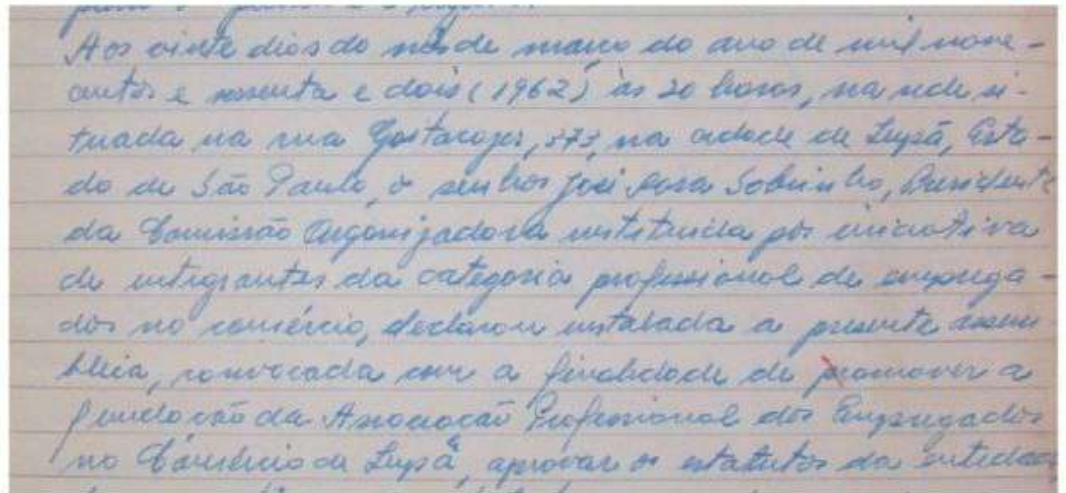 Aos vinte dias do mês de março do ano de mil nove-
centos e sessenta e dois (1962) às 20 horas, na sede si-
tuada na rua, 373, na cidade de Tupã, Esta-
do de São Paulo, o senhor José Rosa Sobrinho, Presidente
da Comissão Organizadora instituida por iniciativa
de integrantes da categoria profissional de emprega-
dos no comércio, declarou instalada a presente assem
bléia, convocada com a finalidade de promover a
fundação da Associação Profissional dos Empregados
no Comércio de Tupã, aprovar os estatutos da entidade,